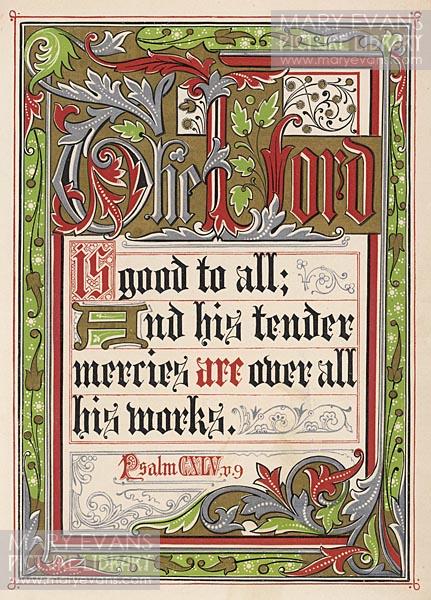 MARY EVANS
PICTURE LIBRARY
www.maryevans.com
The Lord
is good to all;
And his tender
mercies are over all
his works.
Psalm CXLV. v. 9
MARY EVANS
PICTURE LIBRARY
www.maryevans.com
MARY EVANS
PICTURE LIBRARY
www.maryevans.com